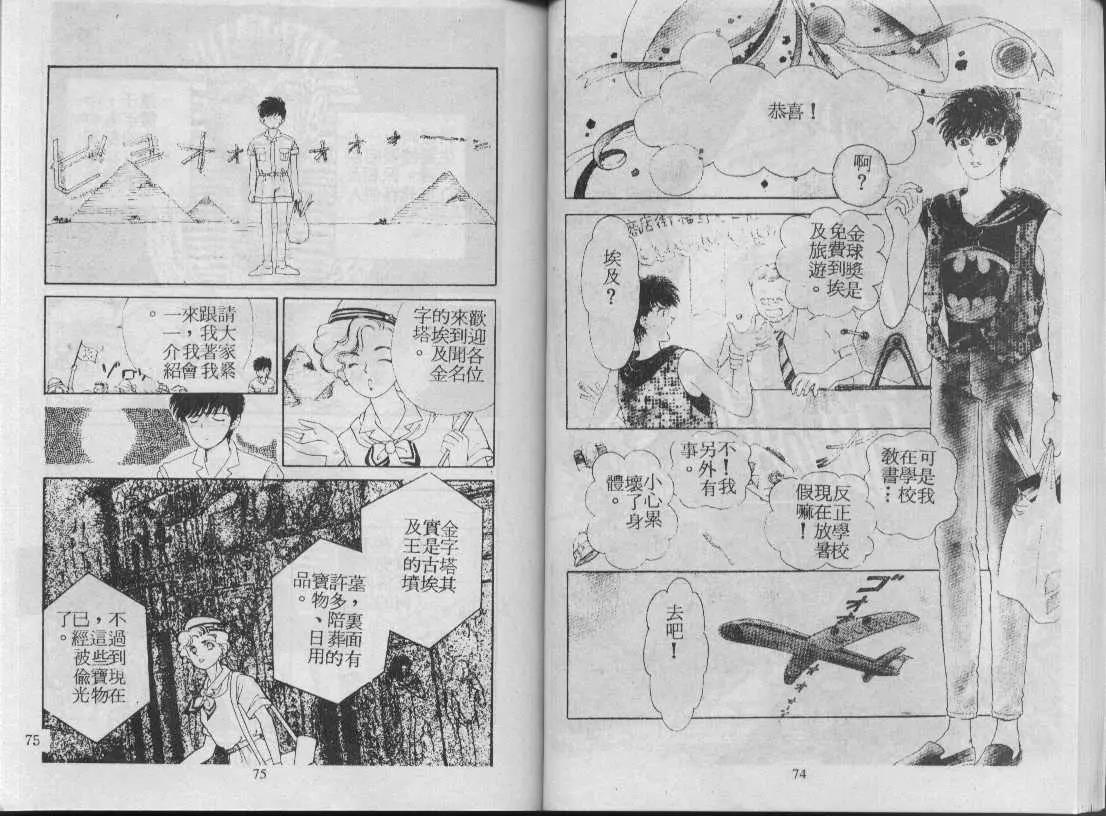 恭喜！
啊？
金球奬是
免費到埃
及旅遊。
埃及？
可是我
在學校
敎書…
反正學校
現在放暑
假嘛！
不！我
另外有
事。
小心累
壞了身
體。
ゴオオ
去吧！
74
ビュオオオオオオ
歡迎各位
來到聞名
的埃及金
字塔。
請大家緊
跟我著我
來，我會
一一介紹
。
金字塔其
實是古埃
及王的墳
墓，裏面有
許多陪葬的
寶物、日用
品。
不過到現在
，這些寶物
已經被偷光
了。
75
75